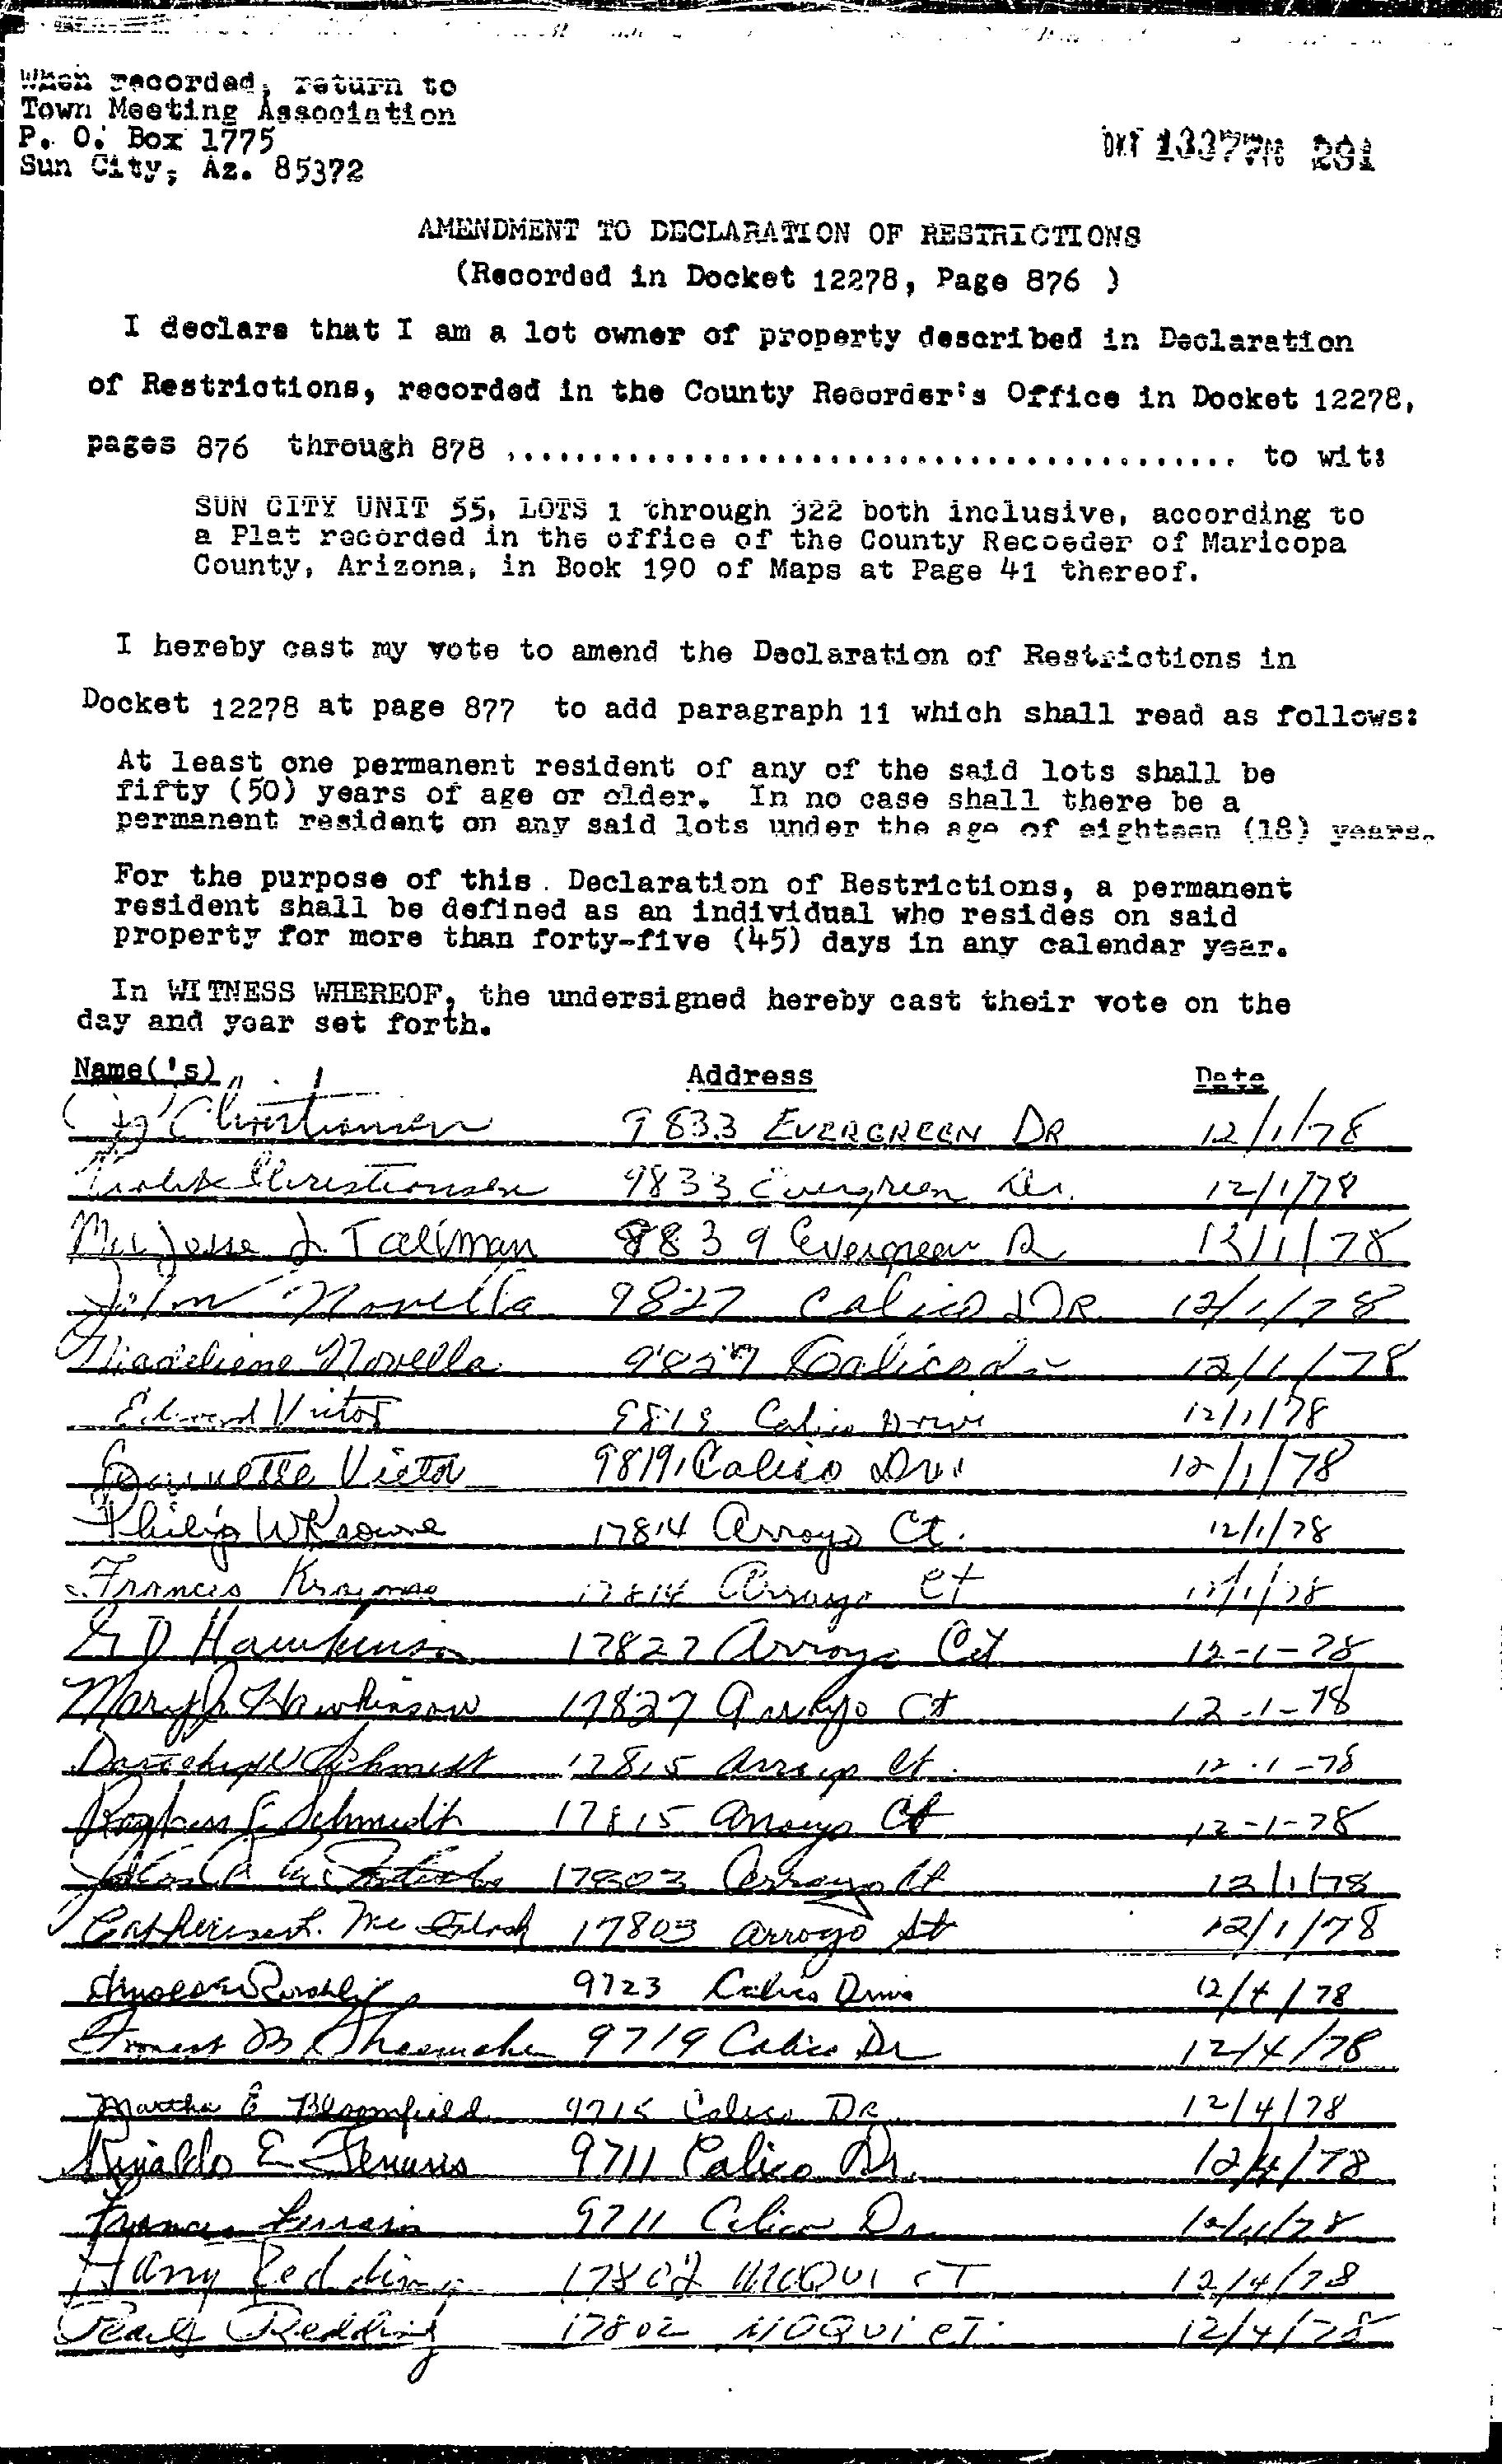 When recorded, return to
Town Meeting Association
P. O. Box 1775
Sun City, Az. 85372
DKT 13377 PG 291
AMENDMENT TO DECLARATION OF RESTRICTIONS
(Recorded in Docket 12278, Page 876 )
I declare that I am a lot owner of property described in Declaration
of Restrictions, recorded in the County Recorder's Office in Docket 12278,
pages 876 through 878 ........................................ to wit:
SUN CITY UNIT 55, LOTS 1 through 322 both inclusive, according to
a Plat recorded in the office of the County Recoeder of Maricopa
County, Arizona, in Book 190 of Maps at Page 41 thereof.
I hereby cast my vote to amend the Declaration of Restrictions in
Docket 12278 at page 877 to add paragraph 11 which shall read as follows:
At least one permanent resident of any of the said lots shall be
fifty (50) years of age or older. In no case shall there be a
permanent resident on any said lots under the age of eighteen (18) years.
For the purpose of this. Declaration of Restrictions, a permanent
resident shall be defined as an individual who resides on said
property for more than forty-five (45) days in any calendar year.
In WITNESS WHEREOF, the undersigned hereby cast their vote on the
day and year set forth.
Name('s) Address Date
Christiansen 9833 EVERGREEN DR 12/1/78
Christiansen 9833 Evergreen Dr. 12/1/78
Jesse J. Tallman 9839 Evergreen 12/1/78
John Novella 9827 Calico DR 12/1/78
Madeliene Novella 9827 Calico dr 12/1/78
Edward Victor 9819 Calico Drive 12/1/78
Victor 9819 Calico 12/1/78
Philip W 17814 Arroyo Ct. 12/1/78
Frances 17814 Arroyo Ct 12/1/78
Hawkinson 17827 Arroyo Ct 12-1-78
Mary Hawkinson 17827 Arroyo Ct 12-1-78
Schmidt 17815 Arroyo Ct. 12-1-78
Schmidt 17815 Arroyo Ct 12-1-78
17803 Arroyo Ct 12/1/78
17803 Arroyo 12/1/78
9723 Calico Drive 12/4/78
9719 Calico Dr 12/4/78
Martha E Bloomfield 9715 Calico DR 12/4/78
Rinaldo E 9711 Calico Dr. 12/4/78
9711 Calico Dr. 12/4/78
Harry Redding 17802 MOQUI CT 12/4/78
Redding 17802 MOQUI CT. 12/4/78